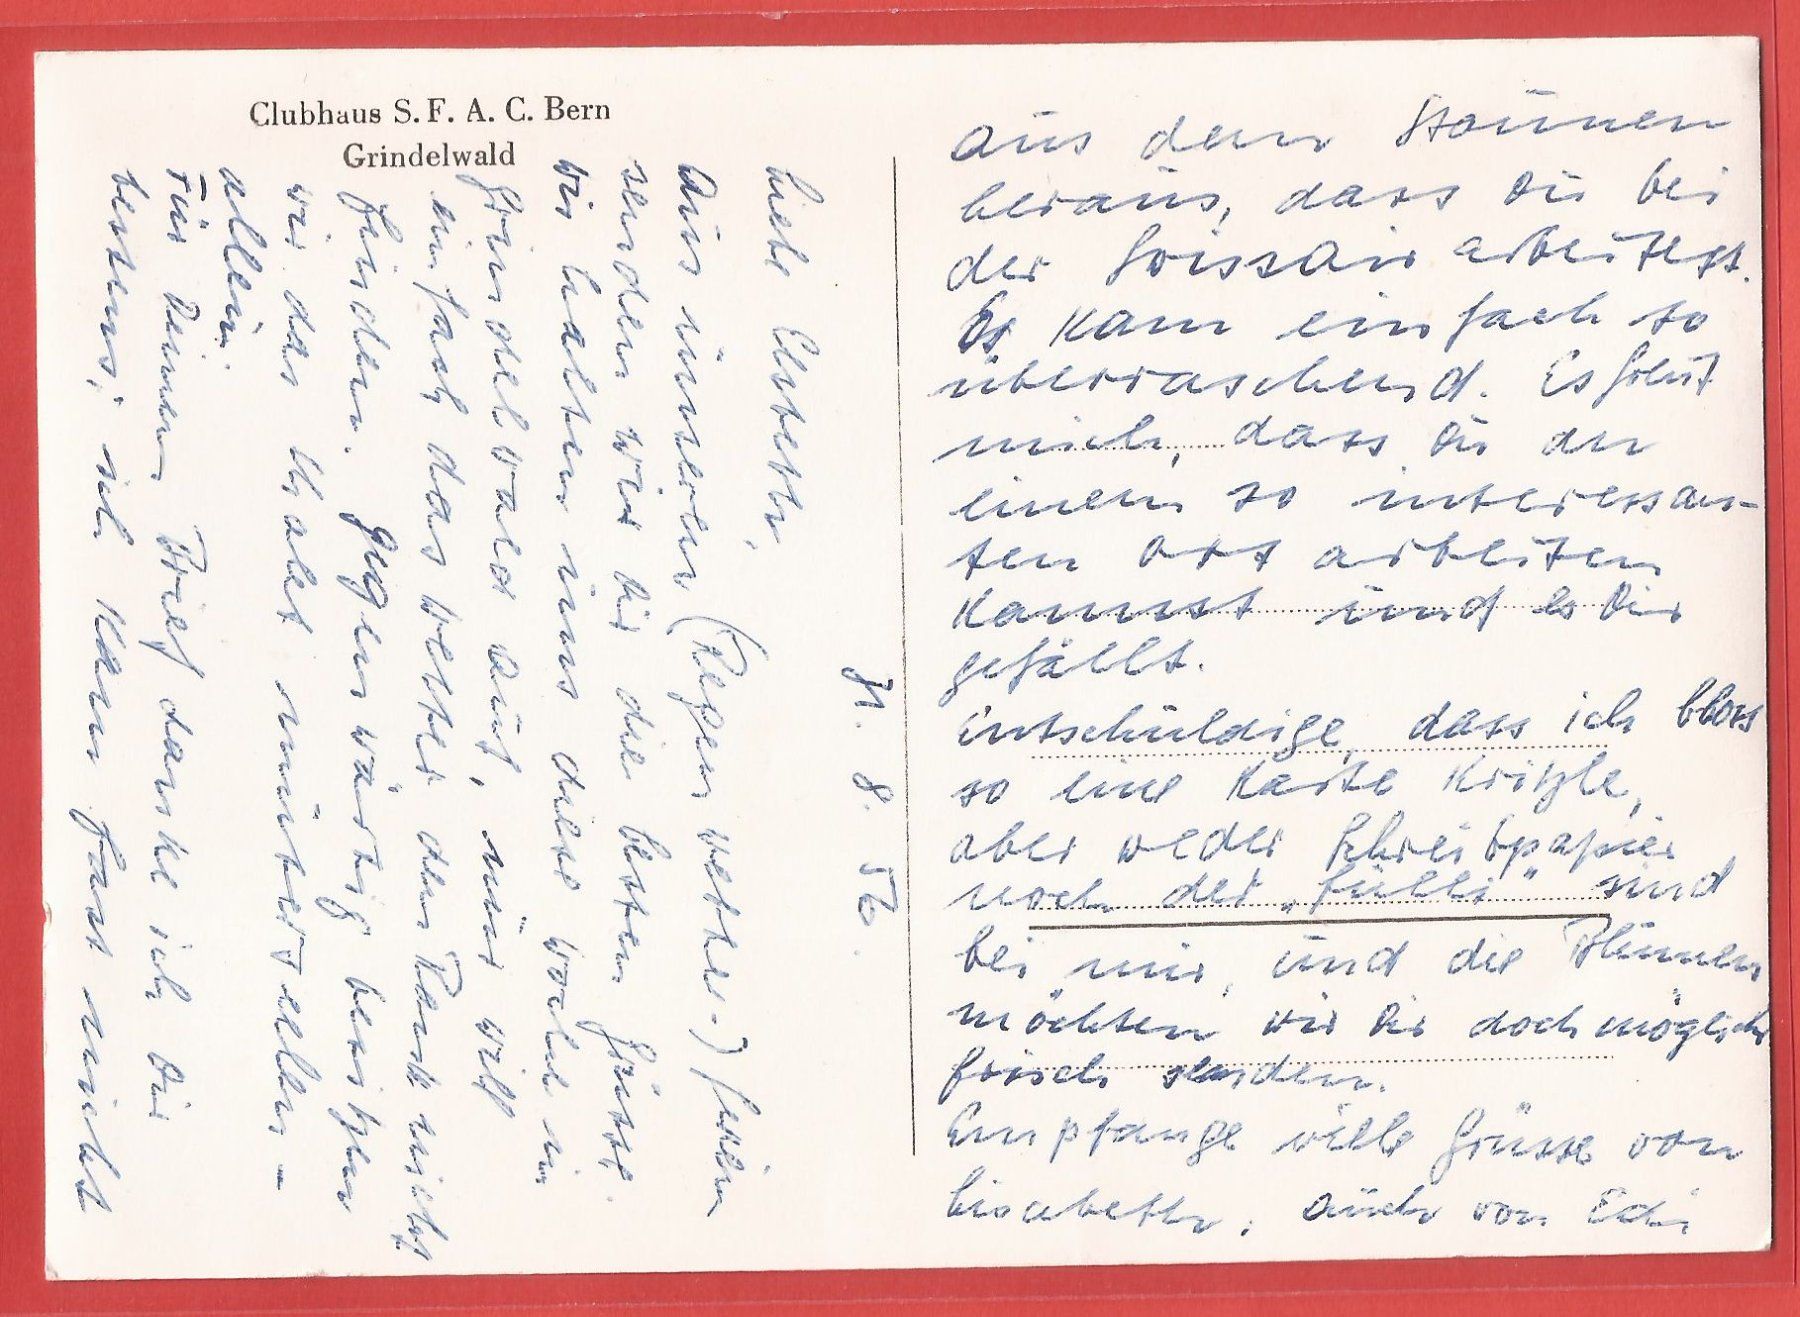 Clubhaus S. F. A. C. Bern
Grindelwald
31. 8. 56.
Liebe Elsbeth,
Aus unseren (Regenwetter-) ferien
senden wir dir die besten Grüsse.
Wir halten uns diese Woche in
Grindelwald auf, nur will
einfach das Wetter den Rank nicht
finden. Gegenwärtig besitzen
wir das Chalet mutterseelen-
allein.
Für Deinen Brief danke ich Dir
bestens; ich kam fast nicht
aus dem Staunen
heraus, dass Du bei
der Swissair arbeitest.
Es kam einfach so
überraschend. Es freut
mich, dass Du an
einem so interessan-
ten Ort arbeiten
kannst und es Dir
gefällt.
Entschuldige, dass ich bloss
so eine Karte kritzle,
aber weder Schreibpapier
noch der „Fülli" sind
bei mir, und die Blumen
möchten wir Dir doch möglichst
frisch senden.
Empfange viele Grüsse von
Lisabeth, auch von Edi